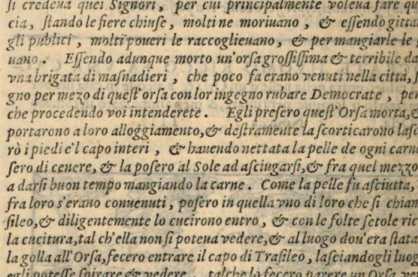 si credeua quei Signori, per cui principalmente voleua fare qu
cia, stando le fiere chiuse, molti ne moriuano, & essendo gitta
gli publici, molti poueri le raccoglieuano, & per mangiarle le p
uano. Essendo adunque morto vn'orsa grossissima & terribile da
vna brigata di masnadieri, che poco fa erano venuti nella città,
gno per mezo di quest'orsa con lor ingegno rubare Democrate, per
che procedendo voi intenderete. Egli presero quest'Orsa morta, &
portarono a loro alloggiamento, & destramente la scorticarono lasc
rò i piedi e'l capo interi, & hauendo nettata la pelle de ogni carn
sero di cenere, & la posero al Sole ad asciugarsi, & fra quel mezzo
a darsi buon tempo mangiando la carne. Come la pelle fu asciutta,
fra loro s'erano conuenuti, posero in quella vno di loro che si chiam
sileo, & diligentemente lo cucirono entro, & con le folte setole ric
la cucitura, tal ch'ella non si poteua vedere, & al luogo dou'era stata
la golla all'Orsa, fecero entrare il capo di Trasileo, lasciandogli luog
egli potesse spirare & vedere talche la fecero parere un'Orsa